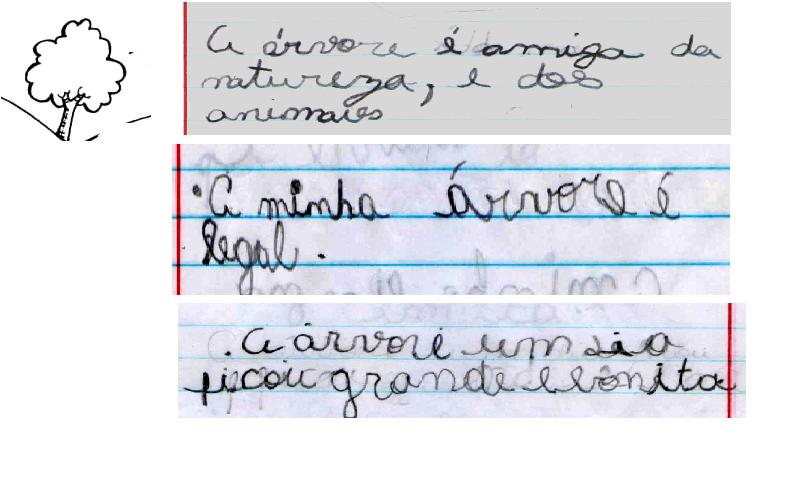 A árvore é amiga da
natureza, e dos
animais
A minha árvore é
legal.
.A árvore um dia
ficou grande e bonita